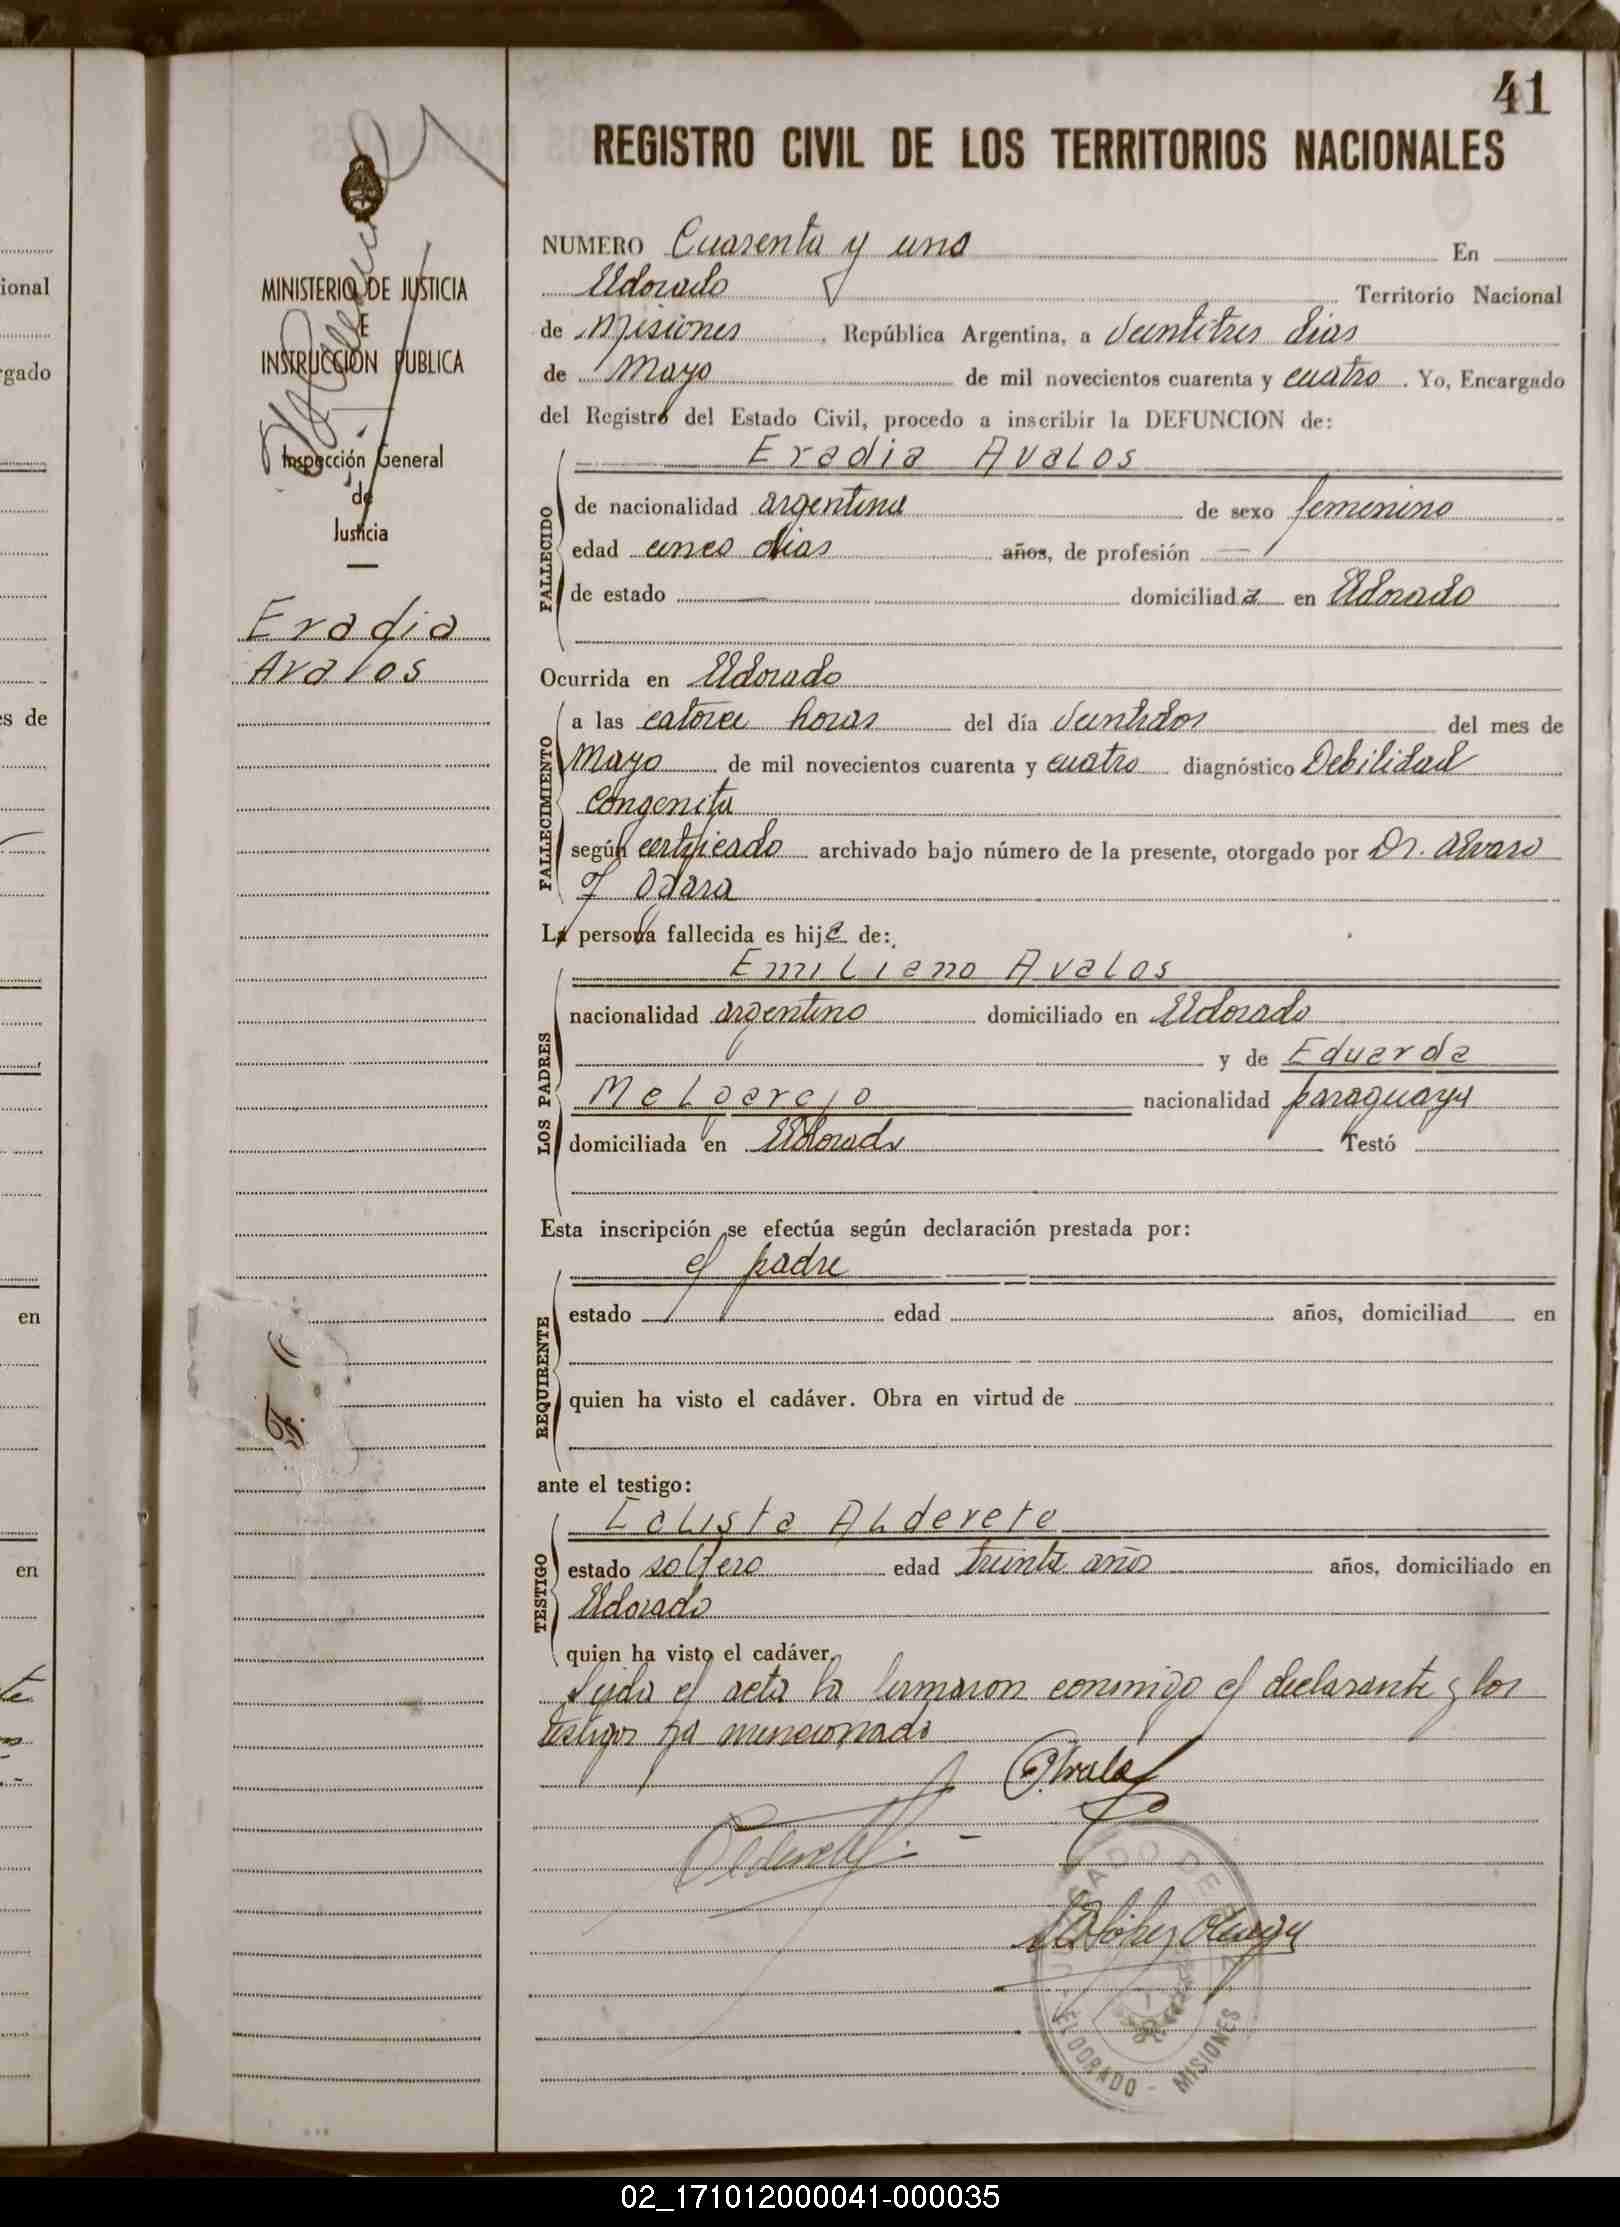 41
REGISTRO CIVIL DE LOS TERRITORIOS NACIONALES
MINISTERIO DE JUSTICIA
E
INSTRUCCIÓN PUBLICA
Inspección General
de
Justicia
Eradia
Avalos
NUMERO Cuarenta y uno En
Eldorado Territorio Nacional
de Misiones, República Argentina, a Veintitres dias
de Mayo de mil novecientos cuarenta y cuatro. Yo, Encargado
del Registro del Estado Civil, procedo a inscribir la DEFUNCION de:
Eradia Avalos
FALLECIDO
de nacionalidad argentina de sexo femenino
edad cinco dias años, de profesión —
de estado — domiciliada en Eldorado
Ocurrida en Eldorado
FALLECIMIENTO
a las catorce horas del día Veintidos del mes de
Mayo de mil novecientos cuarenta y cuatro diagnóstico Debilidad
Congenita
según certificado archivado bajo número de la presente, otorgado por Dr. Alvaro
J Ojara
La persona fallecida es hija de:
Emiliano Avalos
LOS PADRES
nacionalidad argentino domiciliado en Eldorado
y de Eduarda
Melgarejo nacionalidad paraguaya
domiciliada en Eldorado Testó
Esta inscripción se efectúa según declaración prestada por:
el padre
REQUIRENTE
estado edad años, domiciliad en
quien ha visto el cadáver. Obra en virtud de
ante el testigo:
Calista Alderete
TESTIGO
estado soltero edad treinta años años, domiciliado en
Eldorado
quien ha visto el cadáver.
Leida el acta la firmaron conmigo el declarante y los
testigos ya mencionado
ELDORADO - MISIONES
ional
rgado
es de
en
en
02_171012000041-000035